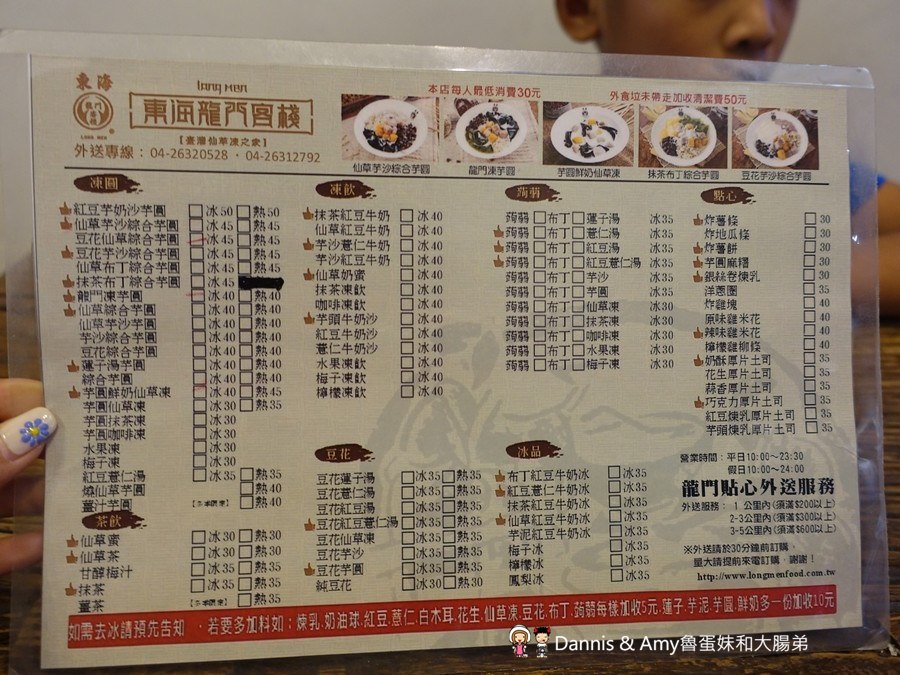 東海
LONG MEN
東海龍門客棧
【臺灣仙草凍之家】
外送專線：04-26320528 · 04-26312792
本店每人最低消費30元
外食垃未帶走加收清潔費50元
仙草芋沙綜合芋圓
龍門凍芋圓
芋圓鮮奶仙草凍
抹茶布丁綜合芋圓
豆花芋沙綜合芋圓
凍圓
紅豆芋奶沙芋圓 冰50 熱50
仙草芋沙綜合芋圓 冰45 熱45
豆花仙草綜合芋圓 冰45 熱45
豆花芋沙綜合芋圓 冰45 熱45
仙草布丁綜合芋圓 冰45 熱45
抹茶布丁綜合芋圓 冰45
龍門凍芋圓 冰40 熱40
仙草綜合芋圓 冰40 熱40
仙草芋沙芋圓 冰40 熱40
芋沙綜合芋圓 冰40 熱40
豆花綜合芋圓 冰40 熱40
蓮子湯芋圓 冰40 熱40
綜合芋圓 冰40 熱40
芋圓鮮奶仙草凍 冰40 熱45
芋圓仙草凍 冰30 熱35
芋圓抹茶凍 冰30
芋圓咖啡凍 冰30
水果凍 冰30
梅子凍 冰30
紅豆薏仁湯 冰35 熱35
燒仙草芋圓 熱40
薑汁芋圓 【冬季限定】 熱40
茶飲
仙草蜜 冰30 熱30
仙草茶 冰30 熱30
甘醇梅汁 冰35 熱35
抹茶 冰35 熱35
薑茶 【冬季限定】 熱35
凍飲
抹茶紅豆牛奶 冰40
仙草紅豆牛奶 冰40
芋沙薏仁牛奶 冰40
芋沙紅豆牛奶 冰40
仙草奶蜜 冰40
抹茶凍飲 冰40
咖啡凍飲 冰40
芋頭牛奶沙 冰40
紅豆牛奶沙 冰40
薏仁牛奶沙 冰40
水果凍飲 冰40
梅子凍飲 冰40
檸檬凍飲 冰40
豆花
豆花蓮子湯 冰35 熱35
豆花薏仁湯 冰35 熱35
豆花紅豆湯 冰35 熱35
豆花紅豆薏仁湯 冰35 熱35
豆花仙草凍 冰35 熱35
豆花芋沙 冰35 熱35
豆花芋圓 冰35 熱35
純豆花 冰30 熱30
蒟蒻
蒟蒻 布丁 蓮子湯 冰35
蒟蒻 布丁 薏仁湯 冰35
蒟蒻 布丁 紅豆湯 冰35
蒟蒻 布丁 紅豆薏仁湯 冰35
蒟蒻 布丁 芋沙 冰35
蒟蒻 布丁 芋圓 冰35
蒟蒻 布丁 仙草凍 冰30
蒟蒻 布丁 抹茶凍 冰30
蒟蒻 布丁 咖啡凍 冰30
蒟蒻 布丁 水果凍 冰30
蒟蒻 布丁 梅子凍 冰30
冰品
布丁紅豆牛奶冰 冰35
紅豆薏仁牛奶冰 冰35
抹茶紅豆牛奶冰 冰35
仙草紅豆牛奶冰 冰35
芋泥紅豆牛奶冰 冰35
梅子冰 冰35
檸檬冰 冰35
鳳梨冰 冰35
點心
炸薯條 30
炸地瓜條 30
炸薯餅 30
芋圓麻糬 30
銀絲卷煉乳 30
洋蔥圈 35
炸雞塊 40
原味雞米花 40
辣味雞米花 40
檸檬雞柳條 40
奶酥厚片土司 35
花生厚片土司 35
蒜香厚片土司 35
巧克力厚片土司 35
紅豆煉乳厚片土司 35
芋頭煉乳厚片土司 35
營業時間：平日10:00～23:30
假日10:00～24:00
龍門貼心外送服務
外送服務：1 公里內(須滿$200以上)
2-3公里內(須滿$300以上)
3-5公里內(須滿$600以上)
※外送請於30分鐘前訂購，
量大請提前來電訂購，謝謝！
http://www.longmenfood.com.tw
如需去冰請預先告知 ·若要多加料如：煉乳.奶油球.紅豆.薏仁.白木耳.花生.仙草凍.豆花.布丁.蒟蒻每樣加收5元.蓮子.芋泥.芋圓.鮮奶多一份加收10元
Dannis & Amy魯蛋妹和大腸弟